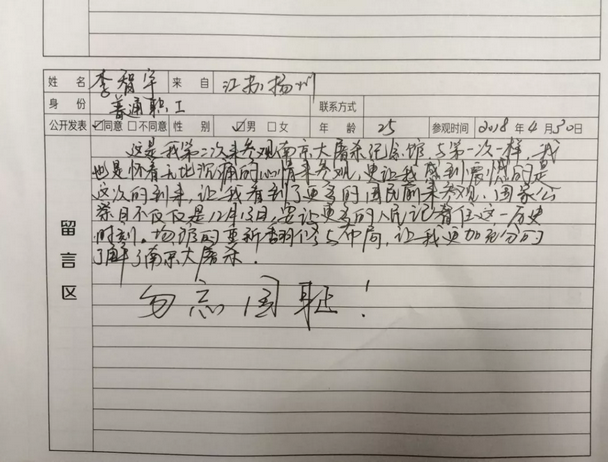 姓 名 李智华 来 自 江苏扬州
身 份 普通职工 联系方式
公开发表 ☑同意 □不同意 性 别 ☑男 □女 年 龄 25 参观时间 2018年4月30日
这是我第二次来参观南京大屠杀纪念馆与第一次一样,我
也是怀着无比沉痛的心情来参观,更让我感到震憾的是
这次的到来,让我看到了更多的国民前来参观、国家公
祭日不仅仅是12月13日,要让更多的人民记者住这一历史
时刻。场馆的重新翻修与布局,让我更加充分的
了解了南京大屠杀.
留言区
勿忘国耻!